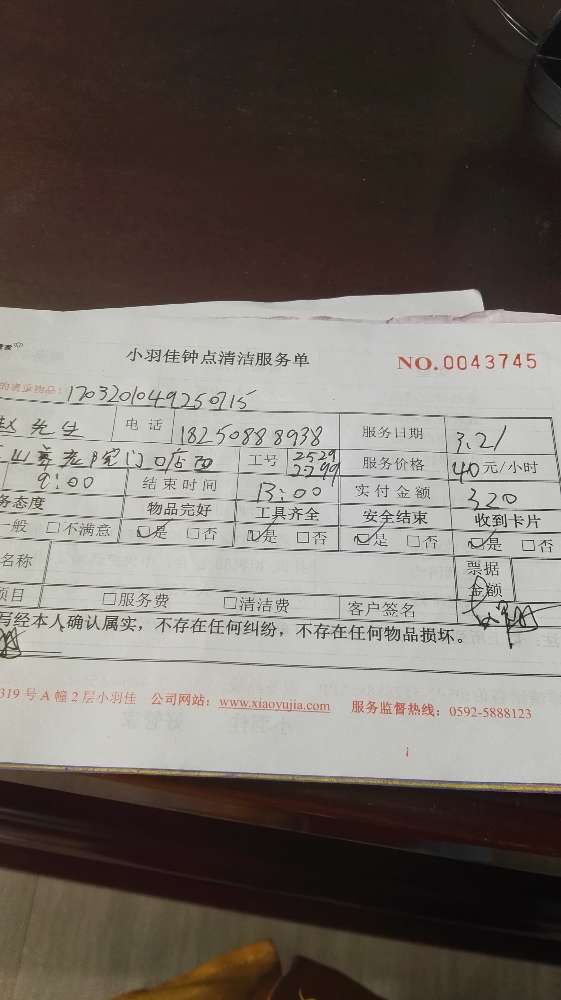 小羽佳钟点清洁服务单 NO.0043745
1703201049250715
赵先生 电 话 18250888938 服务日期 3.21
山养老院门口店面 工号 2529 2799 服务价格 40元/小时
9:00 结束时间 13:00 实付金额 320
务态度 物品完好 工具齐全 安全结束 收到卡片
般 □不满意 ☑是 □否 ☑是 □否 ☑是 □否 ☑是 □否
名称 票据
项目 □服务费 □清洁费 客户签名 金额
写经本人确认属实，不存在任何纠纷，不存在任何物品损坏。
319号A幢2层小羽佳 公司网站：www.xiaoyujia.com 服务监督热线：0592-5888123